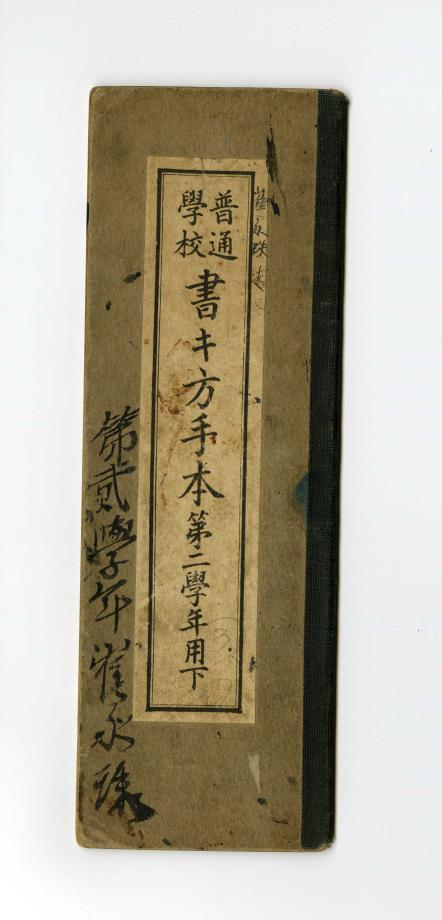 普通
學校
書キ方手本第二學年用下
第貳學年崔永